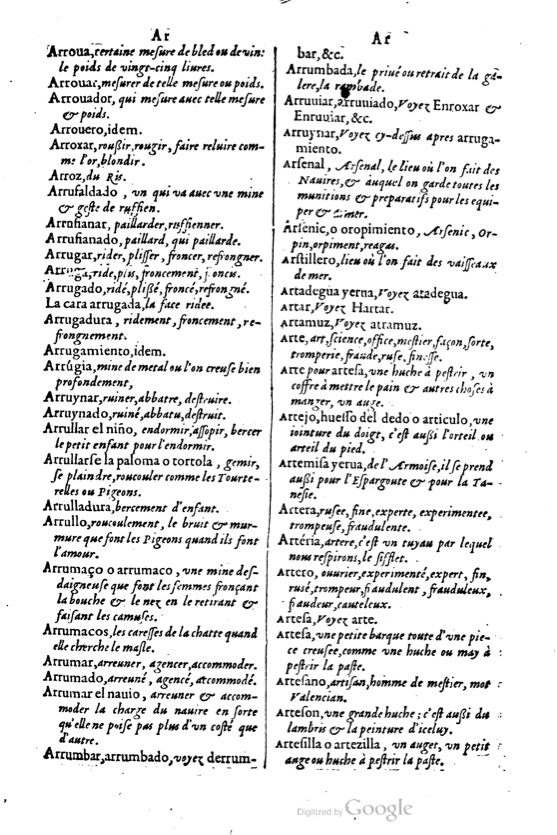 Ar
Arroua, certaine meſure de bled ou de vin:
le poids de vingt-cinq liures.
Arrouar, meſurer de telle meſure ou poids.
Arrouador, qui meſure auec telle meſure
& poids.
Arrouero, idem.
Arroxar, rouſſir, rougir, faire reluire com-
me l'or, blondir.
Arroz, du Ris.
Arrufaldado, vn qui va auec vne mine
& geſte de ruffien.
Arrufianar, paillarder, ruffienner.
Arrufianado, paillard, qui paillarde.
Arrugar, rider, pliſſer, froncer, refrongner.
ride, plis, froncement, joncus.
Arrugado, ridé, plißé, froncé, refrongné.
La cara arrugada, la face ridee.
Arrugadura, ridement, froncement, re-
frongnement.
Arrugamiento, idem.
Arrúgia, mine de metal ou l'on creuſe bien
profondement,
Arruynar, ruiner, abbatre, deſtruire.
Arruynado, ruiné, abbatu, deſtruit.
Arrullar el niño, endormir, aſſopir, bercer
le petit enfant pour l'endormir.
Arrullarſe la paloma o tortola, gemir,
ſe plaindre, roucouler comme les Tourte-
relles ou Pigeons.
Arrulladura, bercement d'enfant.
Arrullo, roucoulement, le bruit & mur-
mure que font les Pigeons quand ils font
l'amour.
Arrumaço o arrumaco, vne mine deſ-
daigneuse que font les femmes fronçant
la bouche & le nez en le retirant &
faiſant les camuſes.
Arrumacos, les careſſes de la chatte quand
elle cherche le maſle.
Arrumar, arreuner, agencer, accommoder.
Arrumado, arreuné, agencé, accommodé.
Arrumar el nauio, arreuner & accom-
moder la charge du nauire en ſorte
qu'elle ne poiſe pas plus d'vn coſté que
d'autre.
Arrumbar, arrumbado, voyez derrum-
Ar
bar, &c.
Arrumbada, le priué ou retrait de la ga-
lere, la rambade.
Arruuiar, arruuiado, Voyez Enroxar &
Enruuiar, &c.
Arruynar, Voyez cy-deſſus apres arruga-
miento.
Arſenal, Arſenal, le lieu où l'on fait des
Nauires, & auquel on garde toutes les
munitions & preparatifs pour les equi-
per & armer.
Arſenic, o oropimiento, Arſenic, Or-
pin, orpiment, reagas.
Arſtillero, lieu où l'on fait des vaiſſeaux
de mer.
Artadegua yerua, Voyez atadegua.
Artar, Voyez Hartar.
Artamuz, Voyez atramuz.
Arte, art, ſcience, office, meſtier, façon, ſorte,
tromperie, fraude, ruſe, fineſſe.
Arte por arteſa, vne huche à peſtrir, vn
coffre à mettre le pain & autres choſes à
manger, vn auge.
Artejo, hueſſo del dedo o articulo, vne
iointure du doigt, c'eſt außi l'orteil ou
arteil du pied.
Artemiſa yerua, de l'Armoiſe, il ſe prend
außi pour l'Eſpargoute & pour la Ta-
neſie.
Artera, ruſee, fine, experte, experimentee,
trompeuſe, fraudulente.
Artéria, artere, c'eſt vn tuyau par lequel
nous reſpirons, le ſifflet.
Artero, ouurier, experimenté, expert, fin,
ruſé, trompeur, fraudulent, frauduleux,
fraudeur, cauteleux.
Arteſa, Voyez arte.
Arteſa, vne petite barque toute d'vne pie-
ce creuſee, comme vne huche ou may à
peſtrir la paſte.
Arteſano, artiſan, homme de meſtier, mot
Valencian.
Arteſon, vne grande huche; c'eſt außi du
lambris & la peinture d'iceluy.
Arteſilla o artezilla, vn auget, vn petit
auge ou huche à peſtrir la paſte.
Digitized by Google